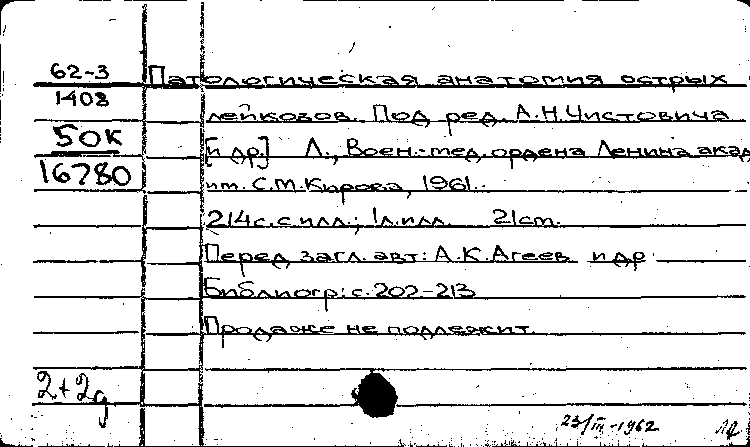 62-3 Патологическая анатомия острых
1408
лейкозов. Под ред. А.Н.Чистовича
50к
[и др.] Л., Воен.-мед. ордена Ленина акад
16780
им. С.М.Кирова, 1961.
214с. с илл.; 1л.илл. 21см.
Перед загл. авт: А.К.Агеев и др
Библиогр: с.202-213
Продаже не подлежит.
2+2д
23/III-1962